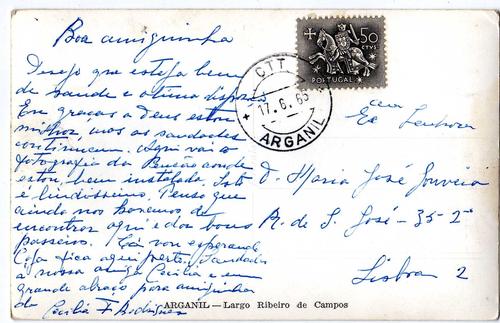 Boa amiguinha
Desejo que esteja bem
de saude e otima disposi
Eu graças a Deus estou
melhor, mas as saudades
continuam. Aqui vai a
fotografia da Pensão aonde
estou, bem instalada. Isto
é lindissimo. Penso que
ainda nos havemos de
encontrar aqui e dar bons
passeios. Cá vou esperando
Coja fica aqui perto. Saudades
a nossa amiga Cecilia e um
grande abraço para amiguinha
da Cecilia F Rodrigues
50
CTVS
PORTUGAL
CTT
17.6.63
ARGANIL
Exª Senhora
D. Maria José Gouveia
R. de S. José - 35 2º
Lisboa 2
ARGANIL — Largo Ribeiro de Campos